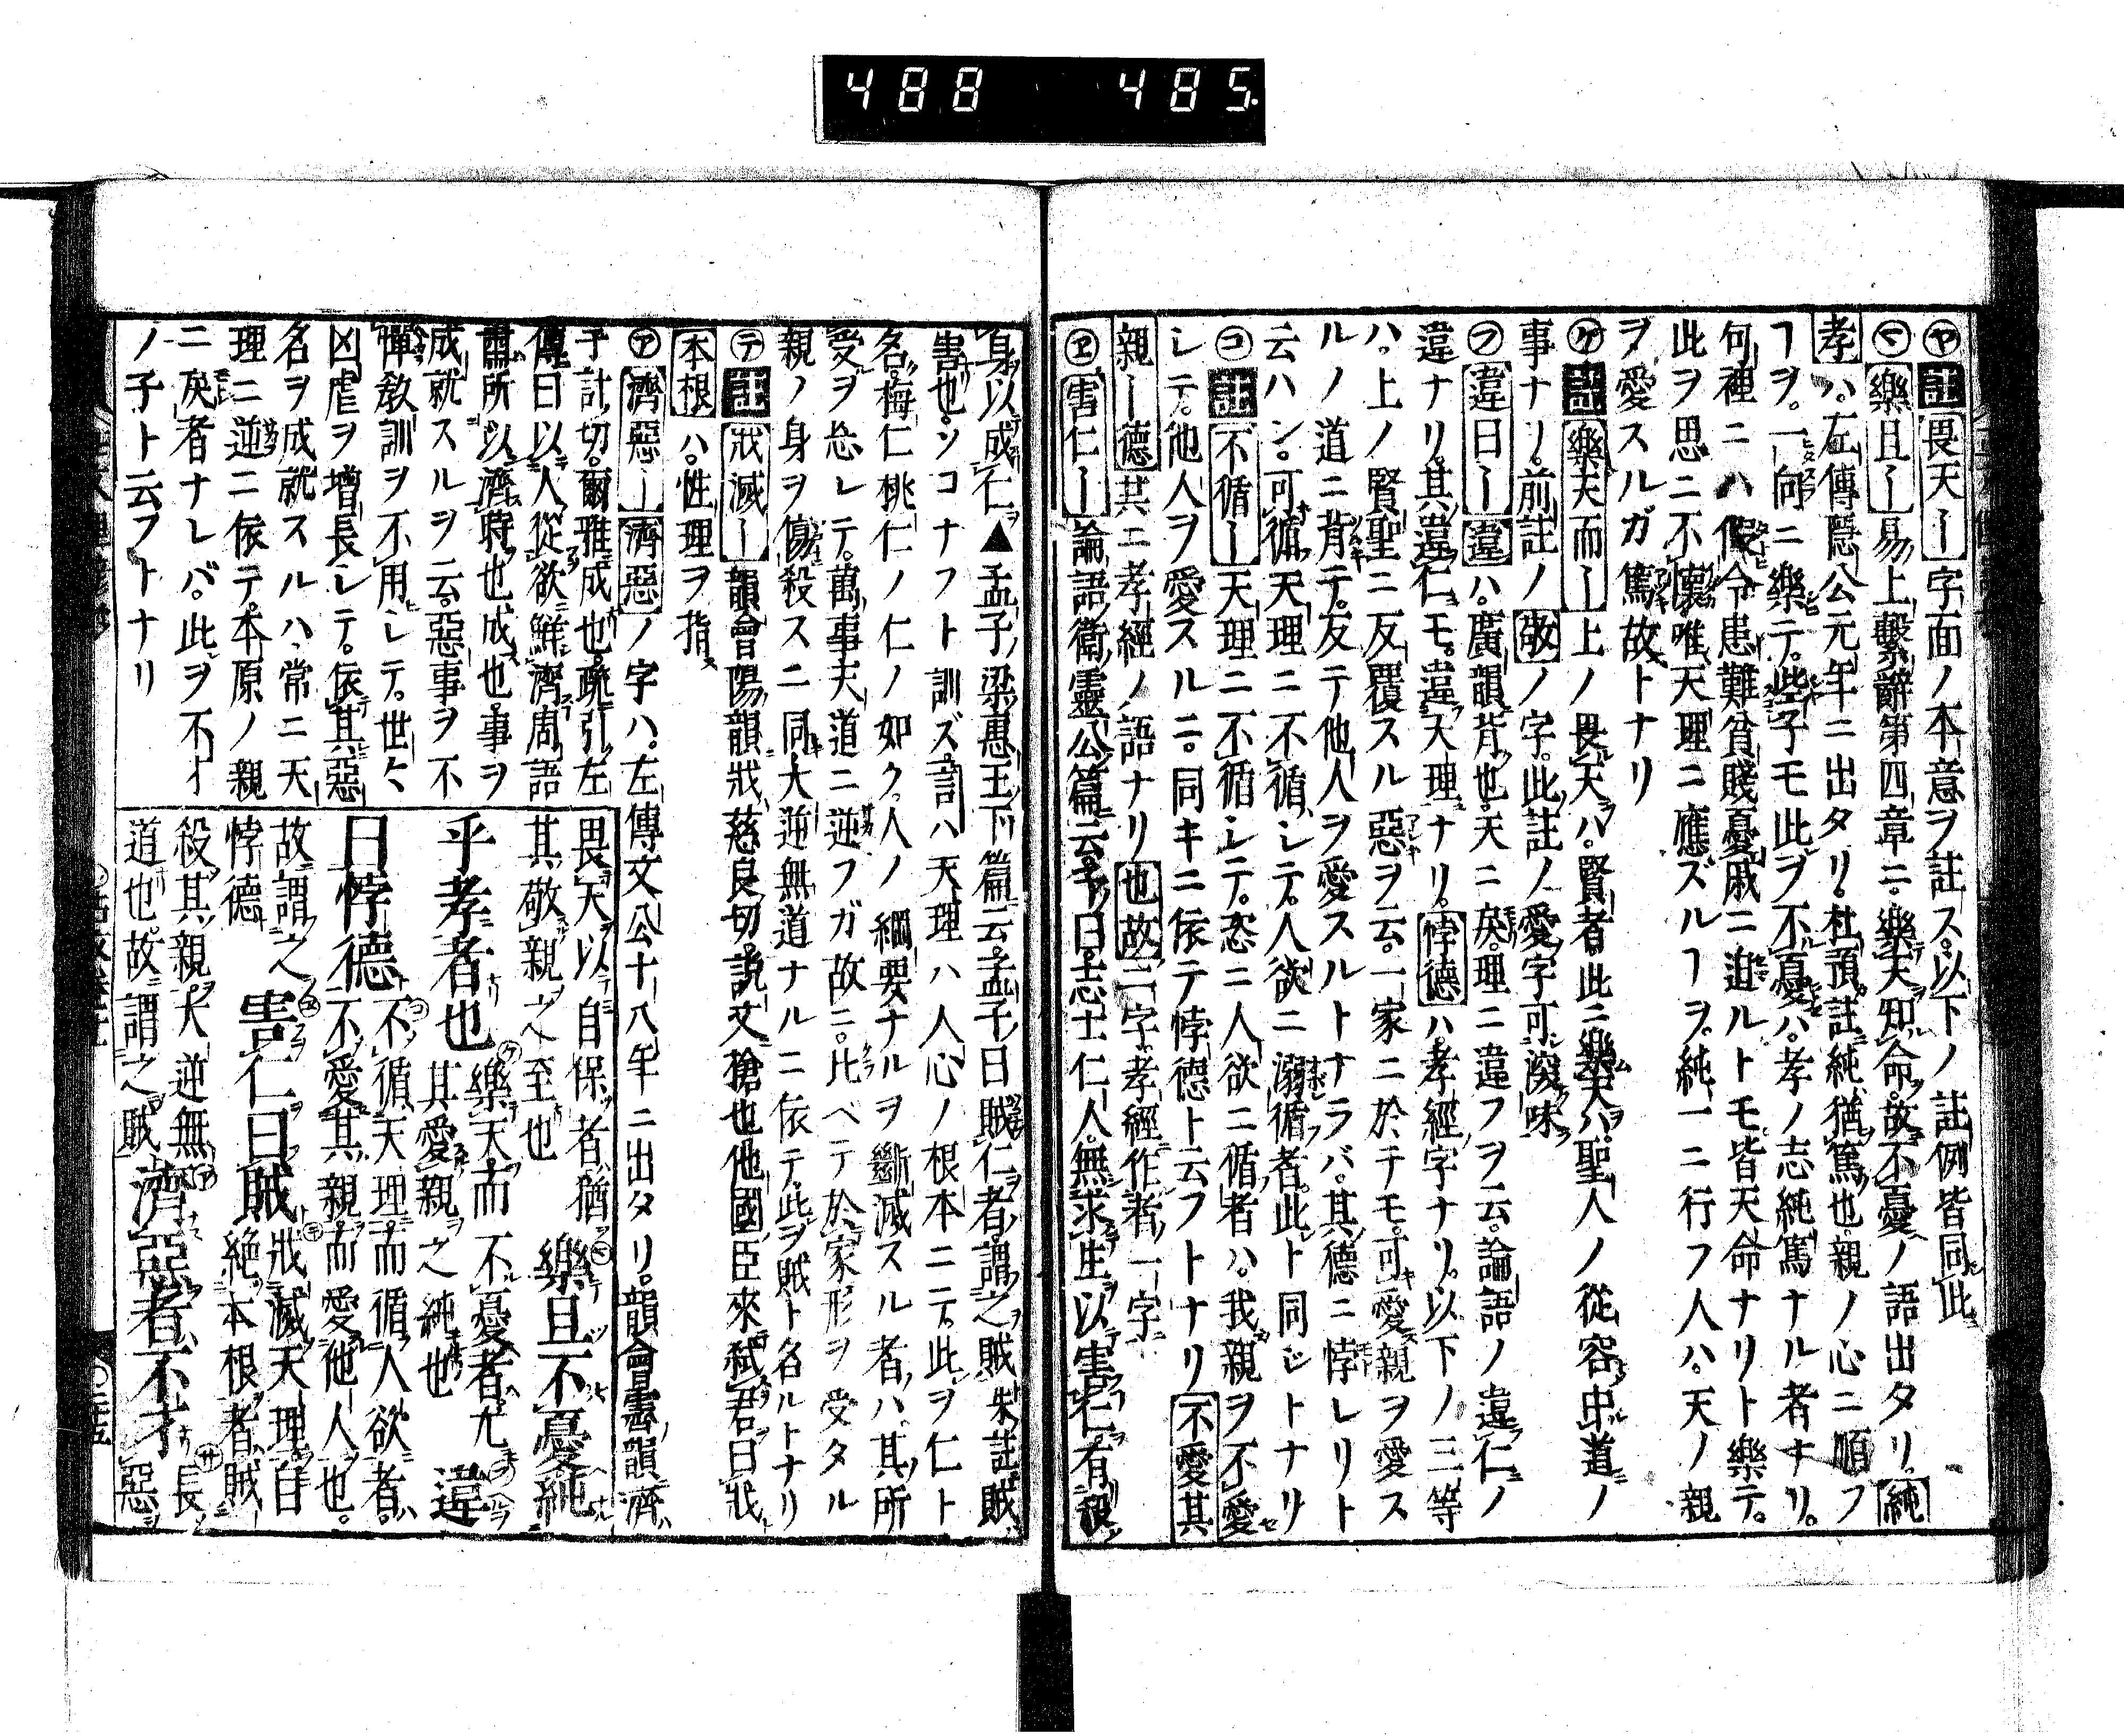 488 485
㋳註畏天｜字面ノ本意ヲ註ス。以下ノ註例皆同此
㋮樂且｜易上繫辭第四章ニ樂天知命。故不憂ノ語出タリ。純
孝ハ。左傳隱公元年ニ出タリ。杜預註純猶篤也。親ノ心ニ順フ
フヲ。一向ニ樂テ。些子モ此ヲ不憂ハ。孝ノ志純篤ナル者ナリ。
句裡ニハ假令患難貧賤憂戚ニ迫ルトモ皆天命ナリト樂テ。
此ヲ思ニ不懷唯天理ニ應ズルヿヲ。純一ニ行フ人ハ。天ノ親
ヲ愛スルガ篤故トナリ
㋘註樂天而｜上ノ畏天ハ。賢者此ニ樂天ハ。聖人ノ從容中道ノ
事ナリ。前註ノ敬ノ字。此註ノ愛字可深味
㋫違曰｜違ハ。廣韻背也。天ニ戾。理ニ違フヲ云。論語ノ違仁ノ
違ナリ。其違仁モ。違天理ナリ。悖德ハ。孝經字ナリ。以下ノ三等
ハ。上ノ賢聖ニ反覆スル惡ヲ云。一家ニ於テモ。可愛親ヲ愛ス
ルノ道ニ背テ。友テ他人ヲ愛スルトナラバ。其德ニ悖レリト
云ハン。可循天理ニ不循シテ。人欲ニ溺循者。此ト同シトナリ
㋙註不循｜天理ニ不循シテ。恣ニ人欲ニ循者ハ。我親ヲ不愛
シテ。他人ヲ愛スルニ。同キニ依テ悖德ト云フトナリ不愛其
親｜德其ニ孝經ノ語ナリ也故二字。孝經作者一字
㋓害仁｜論語衛靈公篇云。子曰。志士仁人。無求生以害仁。有殺
身以成仁▲孟子梁惠王下篇云。孟子曰賊仁者。謂之賊朱註賊
害也。ソコナフト訓ズ。言ハ天理ハ人心ノ根本ニテ。此ヲ仁ト
名。梅仁桃仁ノ仁ノ如ク。人ノ綱要ナルヲ斷滅スル者ハ。其所
愛ヲ忘レテ。萬事天道ニ逆フガ故ニ。比ベテ於家形ヲ受タル
親ノ身ヲ傷殺スニ同。大逆無道ナルニ依テ。此ヲ賊ト名ルトナリ
㋢註戕滅｜韻會陽韻戕慈良切。說文槍也他國臣來弒君曰戕
本根ハ。性理ヲ指
㋐濟惡｜濟惡ノ字ハ。左傳文公十八年ニ出タリ。韻會霽韻濟
子計切。爾雅成也。疏引左
傳曰以人從欲鮮濟周語
所以濟時也成也。事ヲ
成就スルヲ云。惡事ヲ不
憚敎訓ヲ不用シテ。世々
凶虐ヲ增長シテ。依其惡
名ヲ成就スルハ。常ニ天
理ニ逆ニ依テ。本原ノ親
ニ戾者ナレバ。此ヲ不才
ノ子ト云フトナリ
畏天以自保者。猶其敬親之至也 樂且不憂純
乎孝者也 樂天而不憂者。尤其愛親之純也 違
曰悖德 不循天理而循人欲者。不愛其親而愛他人也。
故謂之悖德 害仁曰賊 戕滅天理自絕本根者。賊
殺其親。大逆無道也。故謂之賊 濟惡者不才 長惡